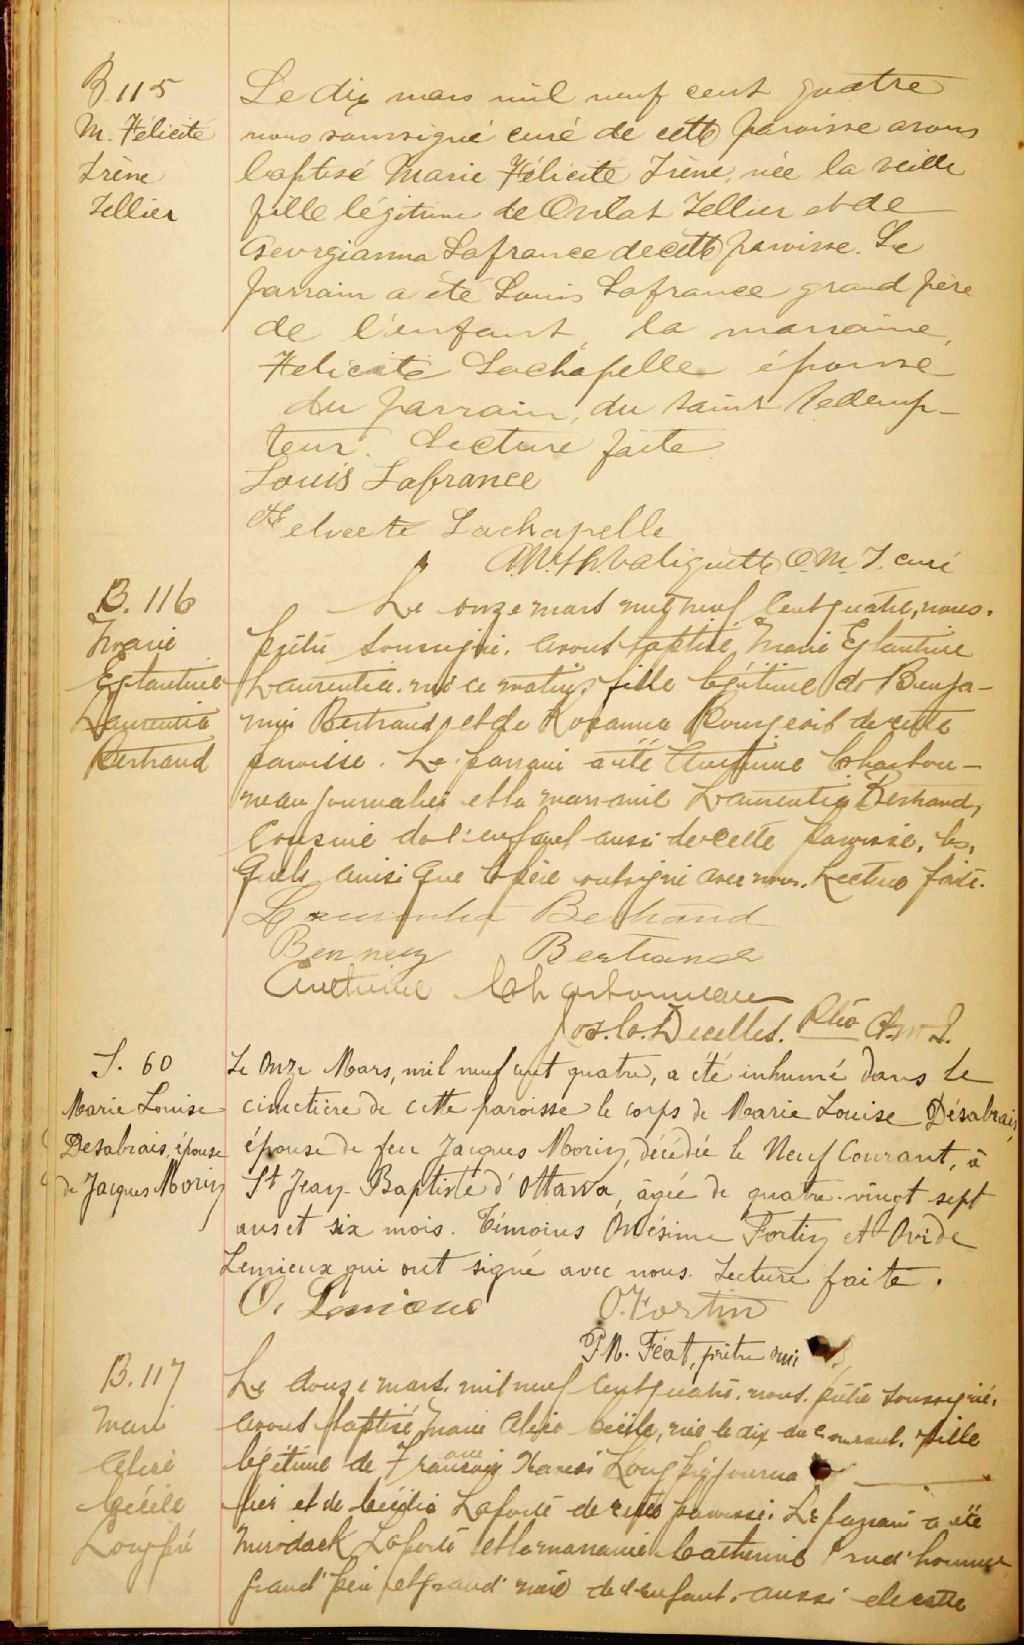 B. 115
M. Félicité
Irène
Tellier
Le dix mars mil neuf cent quatre
nous soussigné curé de cette paroisse avons
baptisé Marie Félicité Irène, née la veille
fille légitime de Tellier et de
Georgianna Lafrance de cette paroisse. Le
parrain a été Louis Lafrance grand père
de l'enfant la marraine,
Félicité Lachapelle épouse
du parrain, du Saint Rédemp-
teur. Lecture faite
Louis Lafrance
Felicete Lachapelle
Valiquette O.M.I. curé
B. 116
Marie
Eglantine
Laurentia
Bertrand
Le onze mars mil neuf cent quatre, nous,
prêtre soussigné, avons baptisé Marie Eglantine
Laurentia, née ce matin, fille légitime de Benja-
min Bertrand, et de Rosanna Bourgeois de cette
paroisse. Le parrain a été Antoine Charbon-
neau journalier et la marraine Laurentia Bertrand,
cousine de l'enfant aussi de cette paroisse, les-
quels ainsi que le père ont signé avec nous. Lecture faite.
Laurentia Bertrand
Bertrand
Antoine Charbonneau
Jos. Decelles. Ptre O.M.I.
S. 60
Marie Louise
Desabrais, épouse
de Jacques Morin
Le Onze Mars, mil neuf cent quatre, a été inhumé dans le
cimetière de cette paroisse le corps de Marie Louise Désabrais,
épouse de feu Jacques Morin, décédée le Neuf Courant, à
St Jean-Baptiste d'Ottawa, âgée de quatre-vingt sept
ans et six mois. Témoins Onésime Fortin et Ovide
Lemieux qui ont signé avec nous. Lecture faite.
O. Lemieux O. Fortin
P. M. Féat, prêtre omi
B. 117
Marie
Alice
Cécile
Longpré
Le douze mars, mil neuf cent quatre, nous, prêtre soussigné,
avons baptisé, Marie Alice Cécile, née le dix du courant, fille
légitime de François Xavier Longpré journa
lier et de Laforte de cette paroisse. Le parrain a été
Laforte et la marraine Catherine Prud'homme
grand'père et grand'mère de l'enfant, aussi de cette